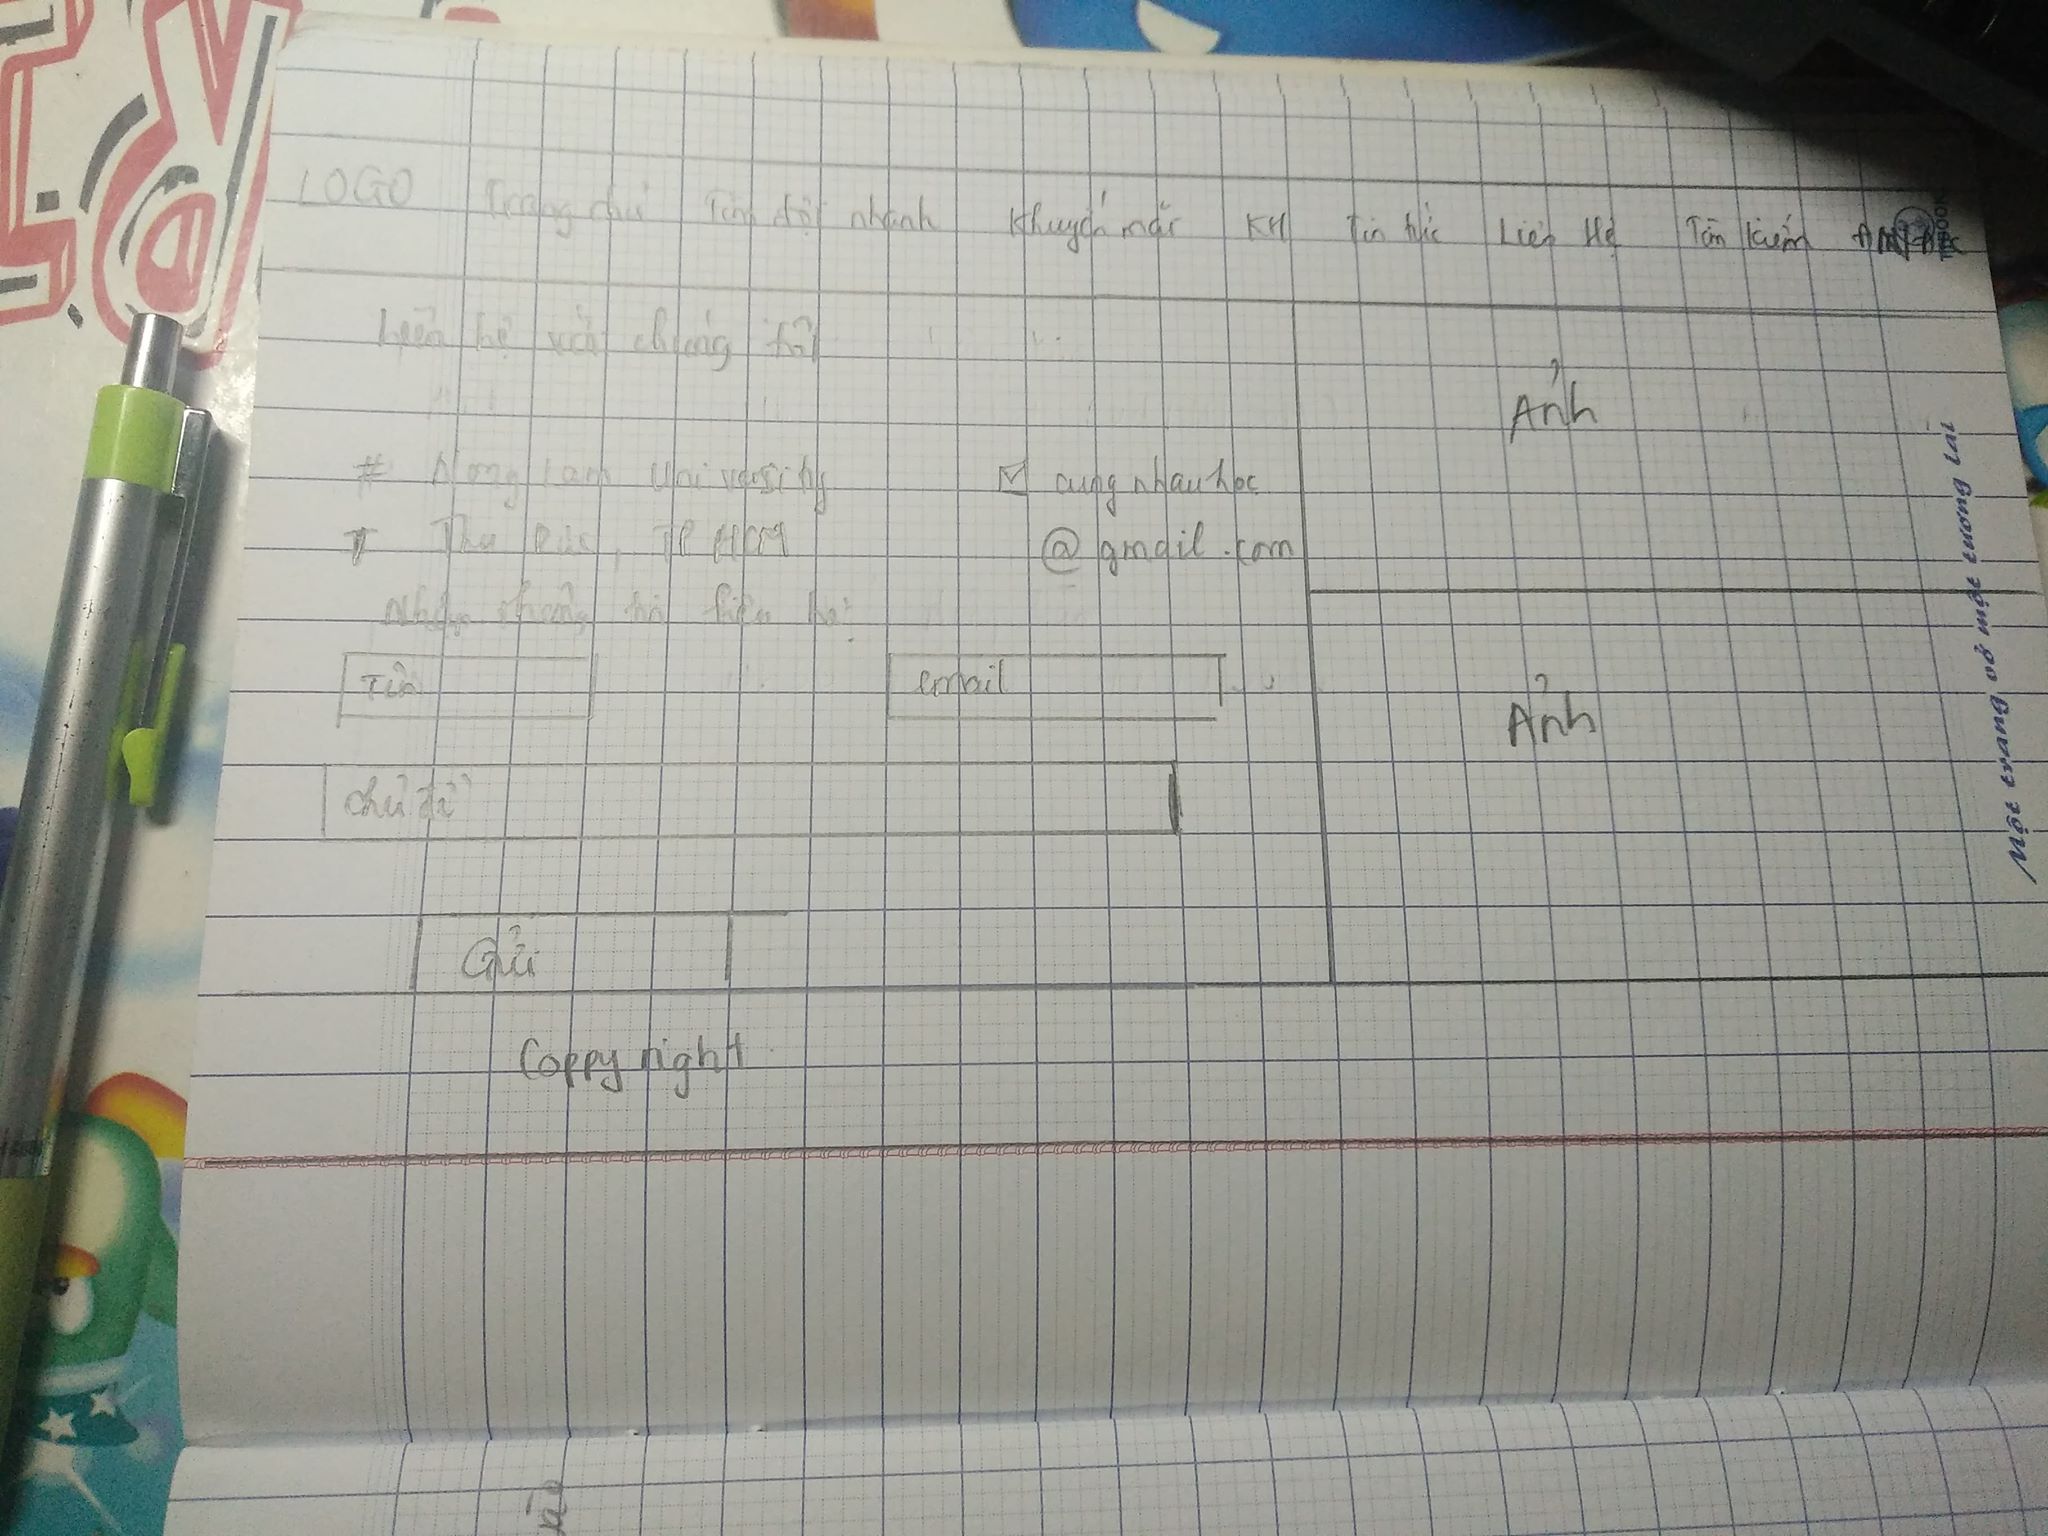 LOGO Trang chủ nhanh Khuyến mãi KH Tin tức Liên Hệ Tìm kiếm
Liên hệ với chúng tôi
Ảnh
# Nong Lam University
cungnhauhoc
@gmail.com
Thu Duc, TP HCM
Nhập thông tin liên hệ:
Tên
email
Ảnh
chủ đề
Gửi
Coppy right
Một trang vở một tương lai